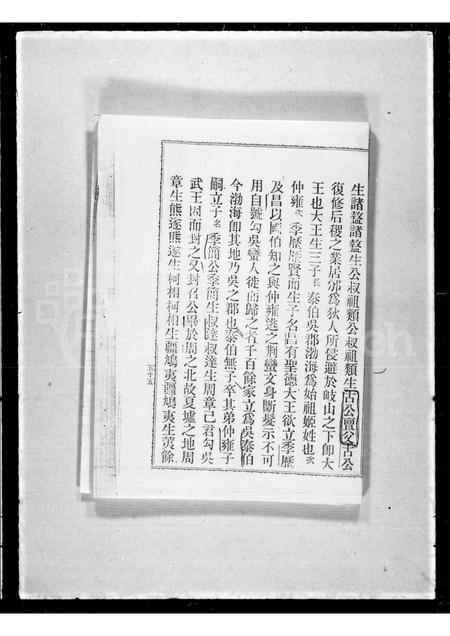 生諸盩諸盩生公叔祖類公叔祖類生古公亶父古公
復修后稷之業居邠爲狄人所侵避於岐山之下卽大
王也大王生三子長泰伯吳郡渤海爲始祖姬姓也次
仲雍次季歷歷賢而生子名昌有聖德大王欲立季歷
及昌以國伯知之與仲雍逃之荆蠻文身斷髮示不可
用自號勾吳蠻人徙而歸之者千百餘家立爲吳泰伯
今渤海卽其地乃吳之郡也泰伯無子卒其弟仲雍子
嗣立子名季簡公季簡生叔達叔達生周章已君勾吳
武王因而封之又封召公畢於周之北故夏墟之地周
章生熊遂熊遂生柯相柯相生疆鳩夷疆鳩夷生英餘
五十五